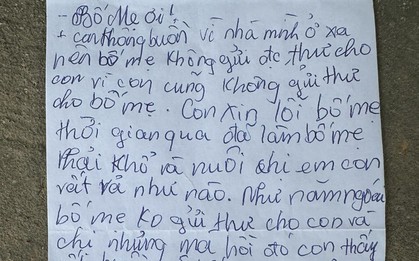 - Bố Mẹ ơi!
+ con không buồn vì nhà mình ở xa
nên bố mẹ không gửi đc thư cho
con vì con cũng không gửi thư
cho bố mẹ. Con xin lỗi bố mẹ
thời gian qua đã làm bố mẹ
phải khổ và nuôi chị em con
vất vả như nào. Như năm ngoái
bố mẹ ko gửi thư cho con và
chị nhưng mà hồi đó con thấy